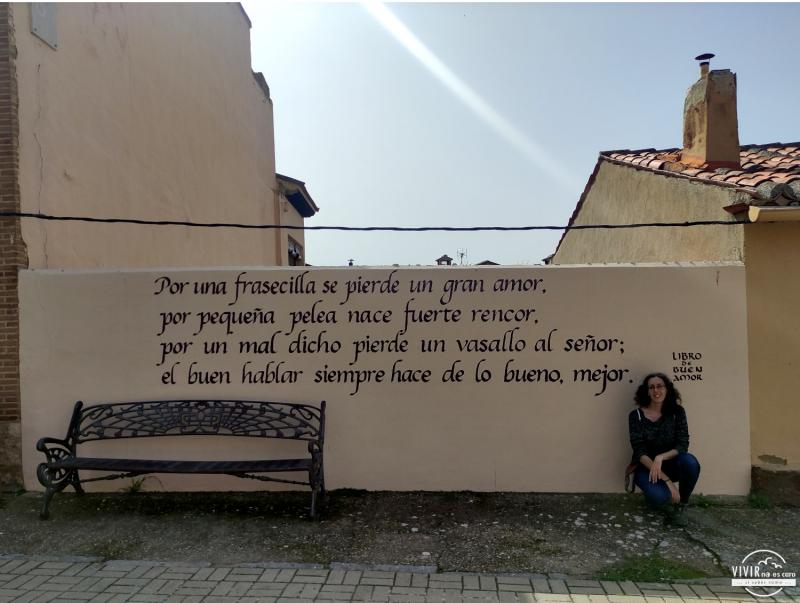 Por una frasecilla se pierde un gran amor,
por pequeña pelea nace fuerte rencor,
por un mal dicho pierde un vasallo al señor;
el buen hablar siempre hace de lo bueno, mejor.
LIBRO
DE
BUEN
AMOR
VIVIR no es caro
... si sabes como ...